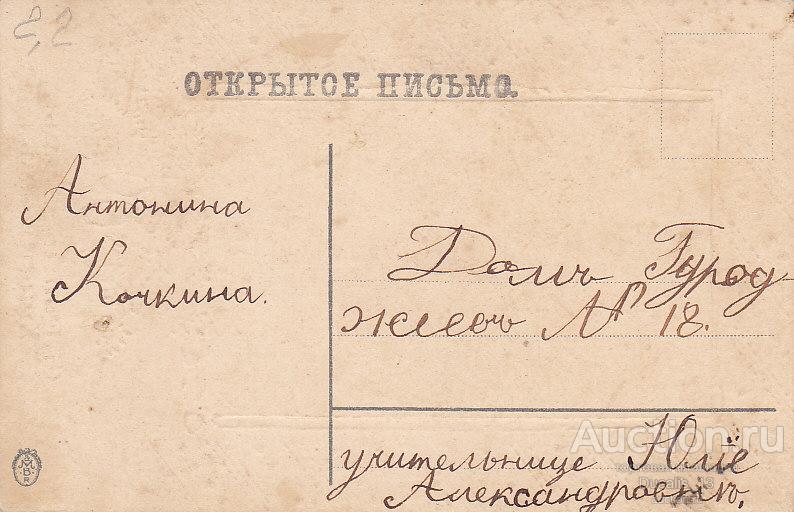 2,2
ОТКРЫТОЕ ПИСЬМО.
Антонина
Кочкина.
Домъ Гурод-
жіевъ № 18.
учительнице Юліе
Александровнъ.
Auction.ru